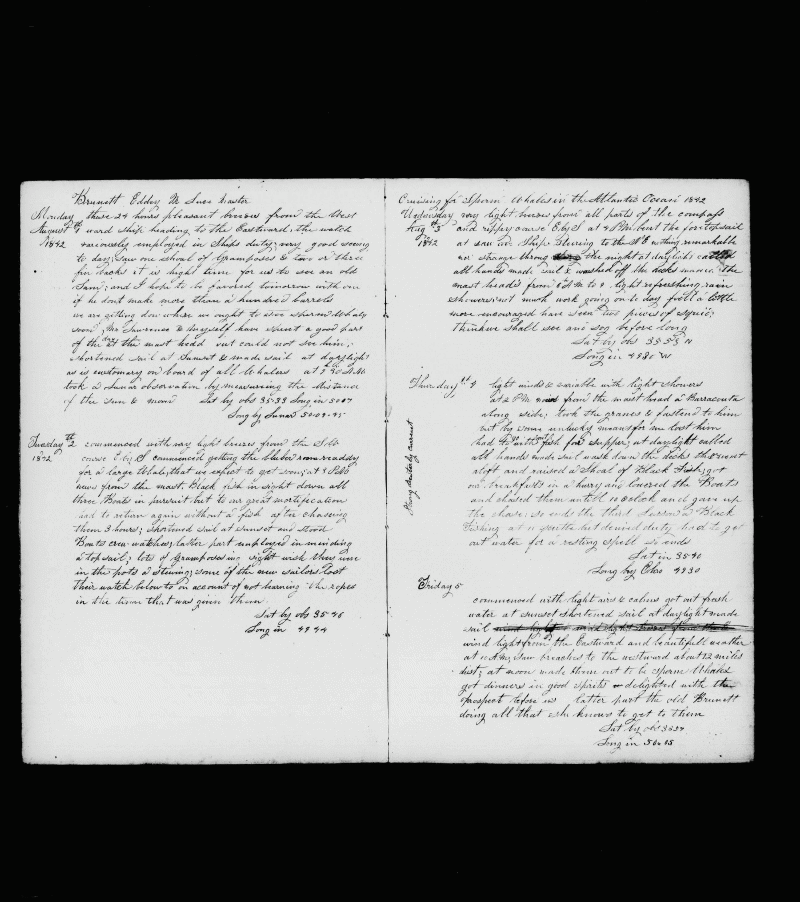 Brunett Eddey M Luce Master
Monday these 24 hours pleasant breezes from the West
August 1st ward ship heading to the Eastward; the watch
1842 variously employed in Ships duty; very good seeing
to day; saw one shoal of Gramposes & two or three
fin backs it is high time for us to see an old
Sam; and I hope to be favored tomorrow with one
if he dont make more than a hundred barrels
we are getting down where we ought to see sperm Whales
soon; Mr Lawrence & myself have spent a good part
of the day at the mast head but could not see him;
shortened sail at Sunset & made sail at daylight
as is customary on board of all Whalers at
took a Lunar observation by measuring the distance
of the sun & moon Lat by obs 35-33 Long in 50 07
Long by Lunar 50-09-45
Tuesday 2th commenced with very light breezes from the
1842 course E by S commenced getting the blubber room ready
for a large Whale; that we expect to get soon; at
news from the mast. Black fish in sight down all
three Boats in pursuit but to our great mortification
had to return again without a fish after chasing
them 3 hours; shortened sail at sunset and stood
Boats crew watches; latter part employed in mending
a top sail; lots of Gramposes in sight wish they was
in the pots a stewing; some of the new sailors lost
their watch below to on account of not learning the ropes
in the time that was given them
Lat by obs 35-46
Long in 49 44
Cruising for Sperm Whales in the Atlantic Ocean 1842
Wednesday very light breezes from all parts of the compass
Aug 3 and rippey course E by S at 4 PM bent the fore topsail
1842 at sun in. Ship Steering to the nothing remarkable
nor strange through the night at daylight called
all hands made sail & washed off the decks manned the
mast heads from light refreshing rain
showers; not much work going on to day feell a little
more encouraged have seen two pieces of squid;
think we shall see and sog before long
Lat by obs 35 53 N
Long in 49 80 W
Thursday th 4 light winds & variable with light showers
at 2 PM from the mast head a Barracouta
along side; took the granes & fastend to him
but by some unlucky means for me lost him
had to with fish for supper; at daylight called
all hands made sail wash down the decks then went
aloft and raised a Shoal of Black Fish; got
our breakfasts in a hurry and lowered the Boats
and chased them until 11 oclock and gave up
the chase; so ends the third Lesson a Black
Fishing at but denied duty had to get
out water for a resting spell so ends
Lat in 35-40
Long by Chro 49 30
Strong westerly current
Friday 5
commenced with light airs & calms got out fresh
water at sunset shortened sail at daylight made
sail
wind light from the Eastward and beautifull weather
at saw breaches to the westward about 12 miles
dist; at noon made them out to be sperm Whales
got dinners in good spirits delighted with the
prospect before us latter part the old Brunett
doing all that she knows to get to them
Lat by obs
Long in 50 05